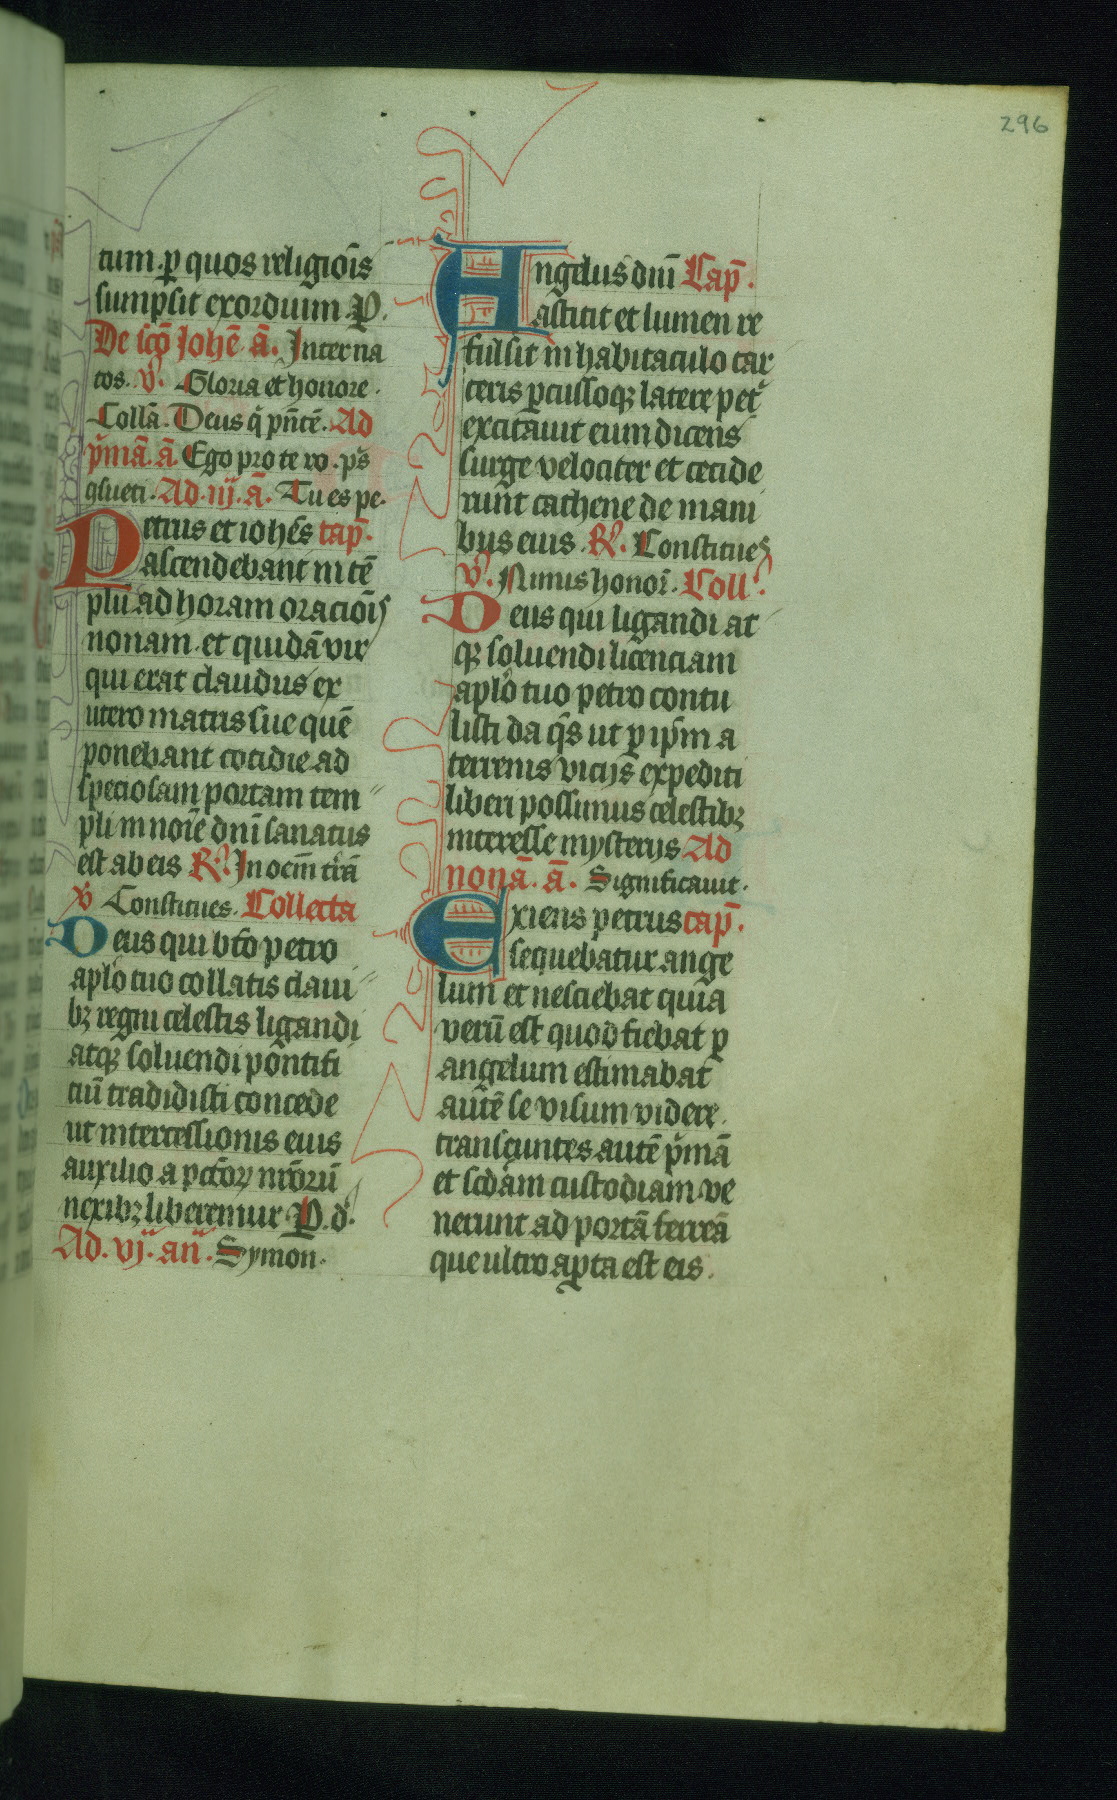 296
tum. ꝑ quos religiois̄
sumpsit exordium. P.
De sc̄o Joh̄e a᷃. Inter na
tos. v̊. Gloria et honore.
Collā. Deus q̇ p̄ntē. Ad
p̍mā. a᷃. Ego pro te ro. p̄s
qſueti. Ad. iij. a᷃. Tu es pe.
Petrus et ioh̄es cap̄.
ascendebant in tē
plū ad horam oraciois̄
nonam. et quidā vir
qui erat claudus ex
utero matris sue quē
ponebant cotidie ad
speciosam portam tem
pli in noīe dn̄i sanatus
est ab eis R̸. In oēm tr̄ā
v̊ Constitues. Collecta
Deus qui bt̄o petro
apl̄o tuo collatis claui
bꝫ regni celestis ligandi
atqꝫ soluendi pontifi
ciū tradidisti concede
ut intercessionis eius
auxilio a pctōꝝ nr̄orū
nexibꝫ liberemur. P. d.
Ad. vj. an̄. Symon.
Angelus dn̄i Cap̄.
astitit et lumen re
fulsit in habitaculo car
ceris ꝑcussoqꝫ latere pet̍
excitauit eum dicens
surge velociter et cecide
runt cathene de mani
bus eius. R̸. Constitues
v̊. Nimis honor̄. Coll̄.
Deus qui ligandi at
qꝫ soluendi licenciam
apl̄o tuo petro contu
listi da q̄s ut ꝑ ip̄m a
terrenis vicijs expediti
liberi possimus celestibꝫ
interesse mysterijs Ad
nonā. a᷃. Significauit.
Exiens petrus cap̄.
sequebatur ange
lum et nesciebat quia
verū est quod fiebat ꝑ
angelum estimabat
autē se visum videre.
transeuntes autē p̍mā
et scd̄am custodiam ve
nerunt ad portā ferreā
que ultro aꝑta est eis.